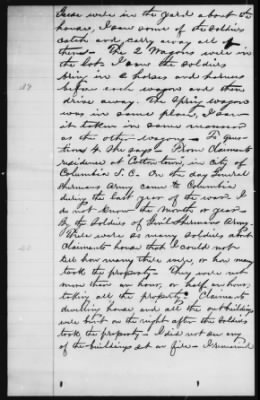 Geese were in the yard about the
house, I saw some of the soldiers
catch and carry away all of
them - The 2 Wagons were in
the lot. I saw the soldiers
bring in 2 horses and harness
before each wagon and then
drive away. The Spring wagon
was in same place, I saw
it taken in same manner
as the other wagons - To ques
tions 4 She says - From Claimants
residence at Cotton town, in City of
Columbia S.C. On the day General
Shermans Army came to Columbia
during the last year of the war I
do not know the month or year -
By the Soldiers of Genl Sherman Army
There were so many soldiers about
Claimants house that I could not
tell how many there were, or how many
took the property - They were not
more than an hour, or half an hour
taking all the property - Claimants
dwelling house and all the out buildings
were burnt on the night after the Soldiers
took the property - I did not see any
of the buildings set on fire - I remained